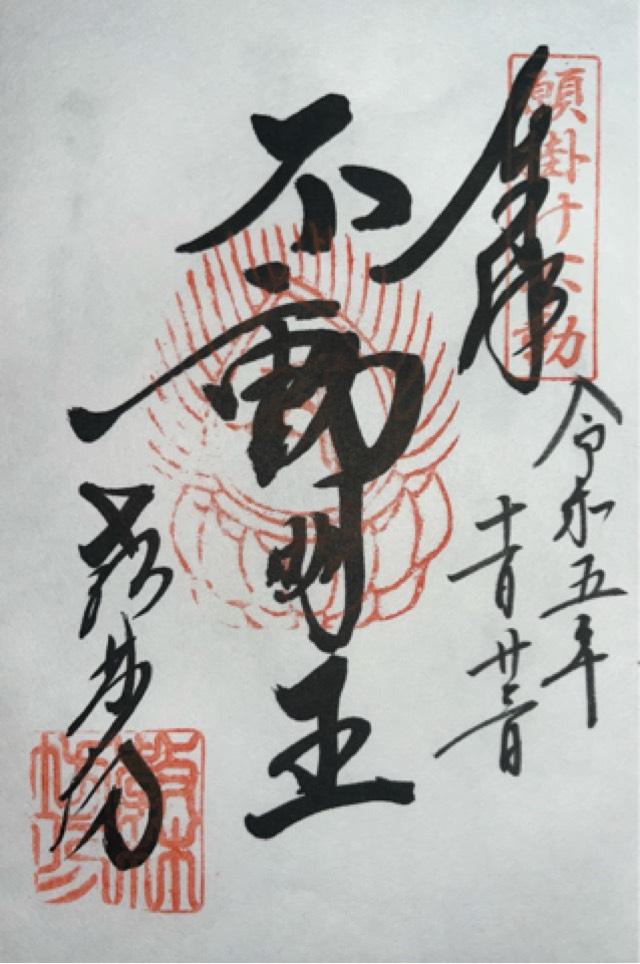 奉拝
願掛け不動
令和五年
十一月
不動明王
教林坊